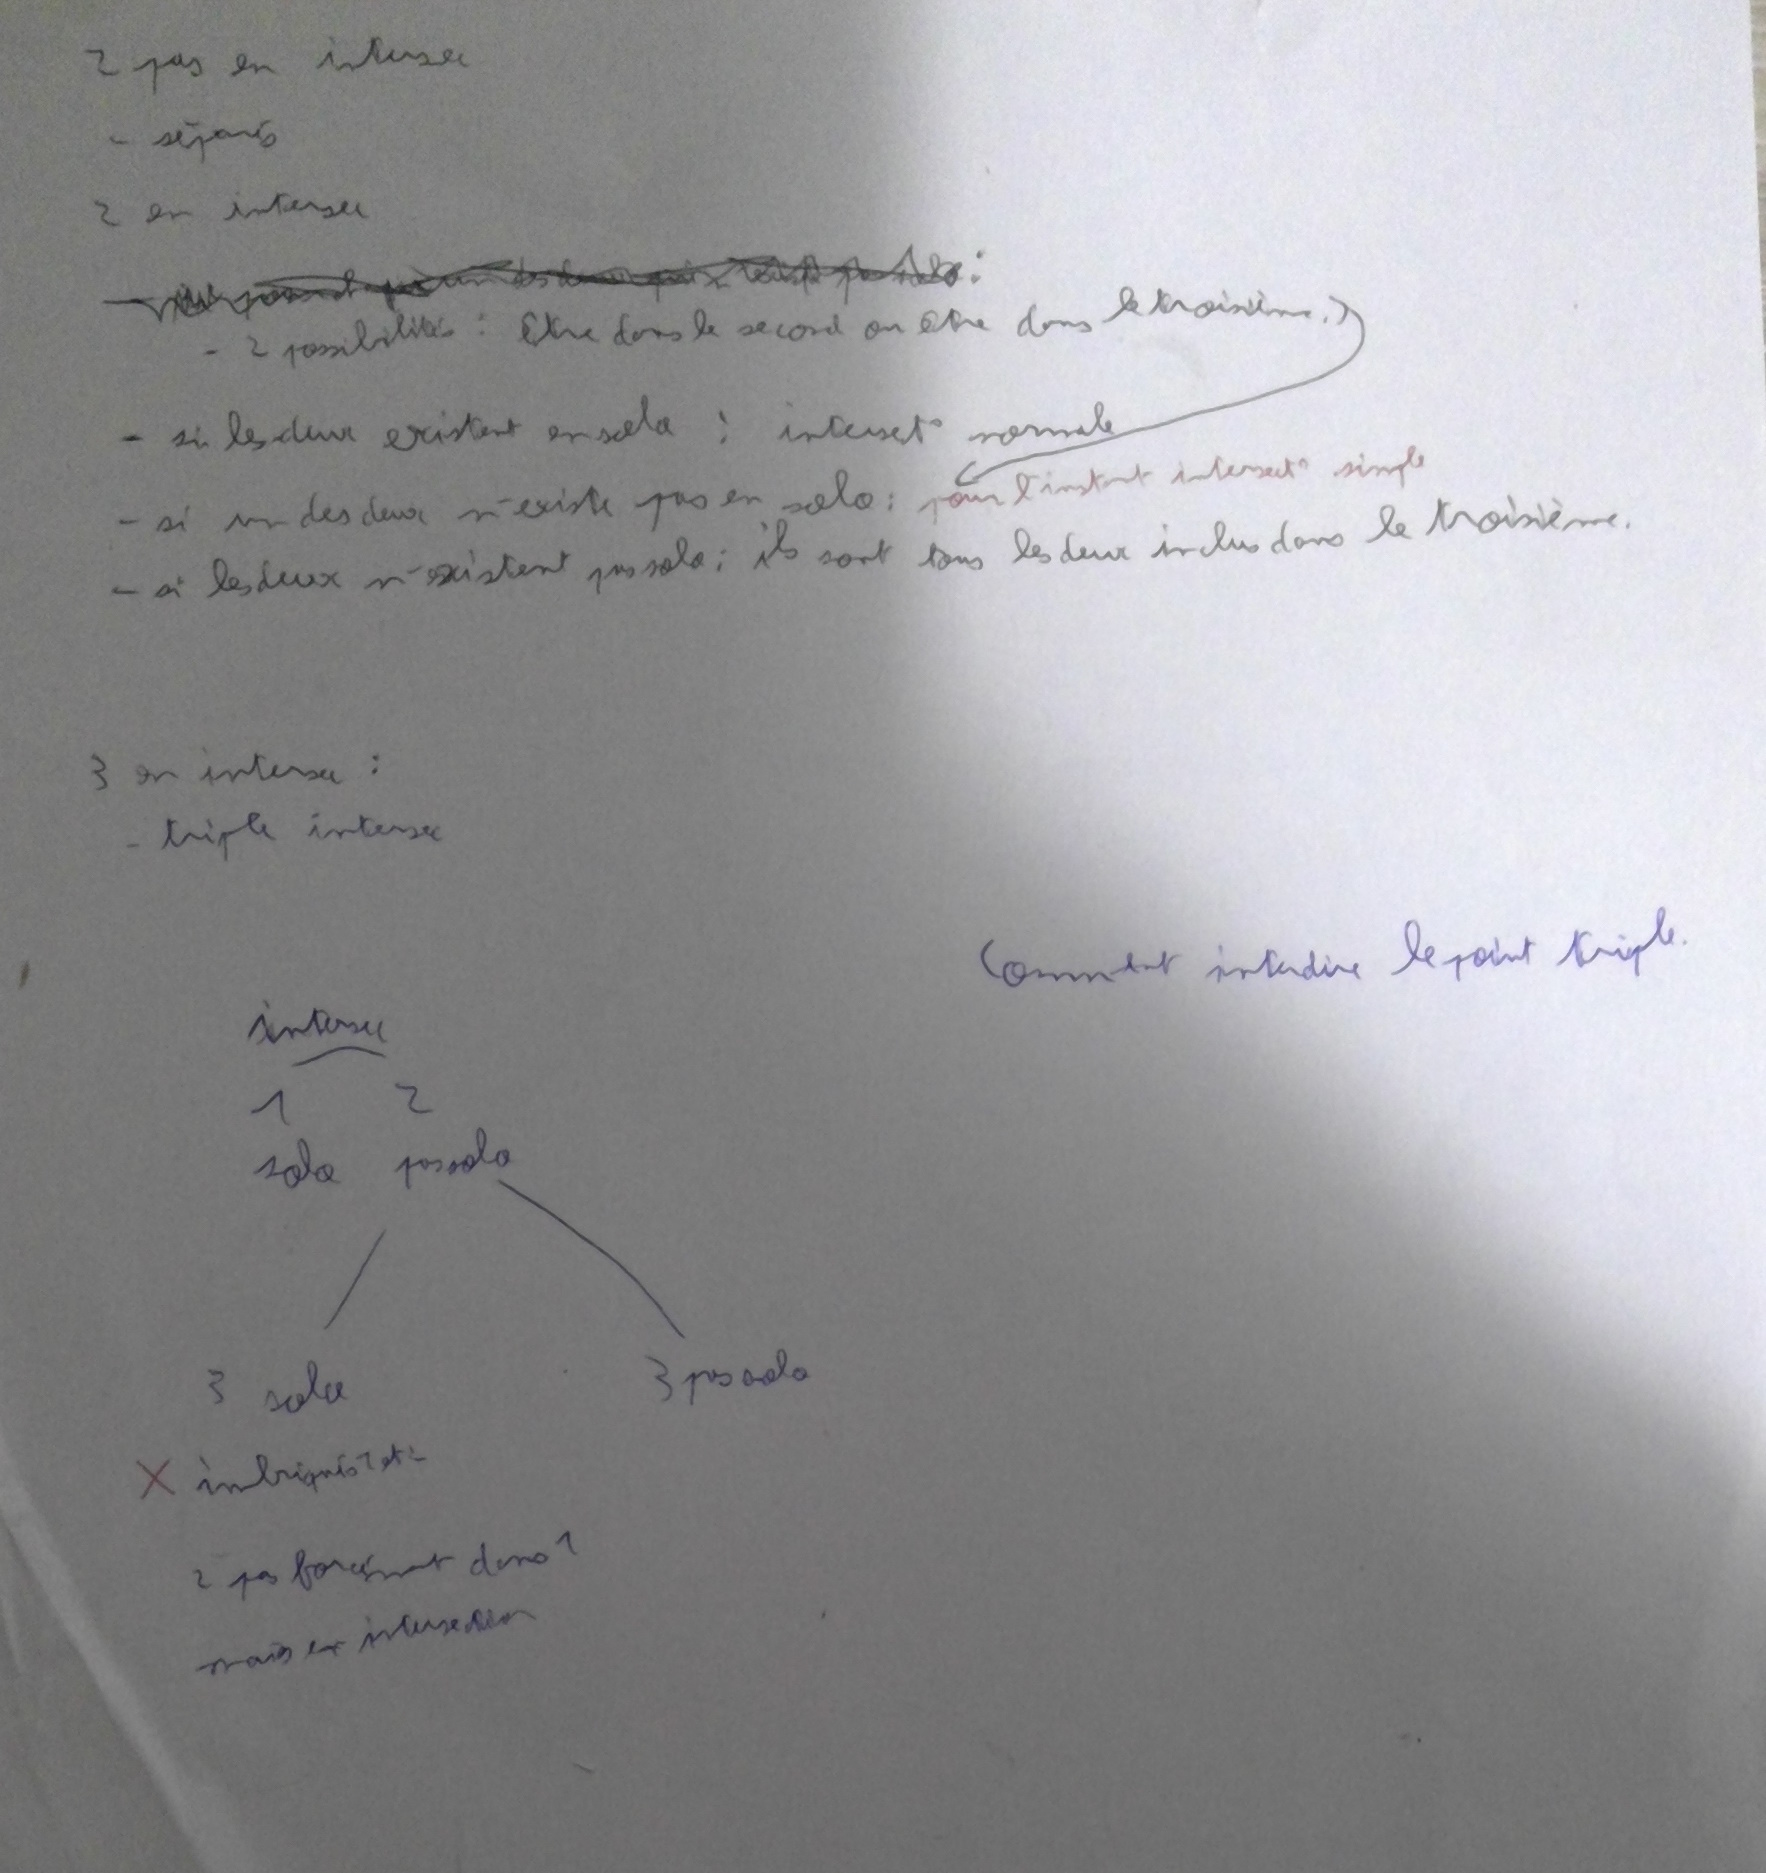 2 pas en intersec
- séparés
2 en intersec
- 2 possibilités : être dans le second ou être dans le troisième.)
- si les deux existent en solo : intersect° normale
- si un des deux n'existe pas en solo : pour l'instant intersect° simple
- si les deux n'existent pas solo : ils sont tous les deux inclus dans le troisième.
3 en intersec :
- triple intersec
Comment interdire le point triple.
intersec
1 2
solo pas solo
3 solo 3 pas solo
X imbriqués
2 pas forcément dans 1
mais en intersection